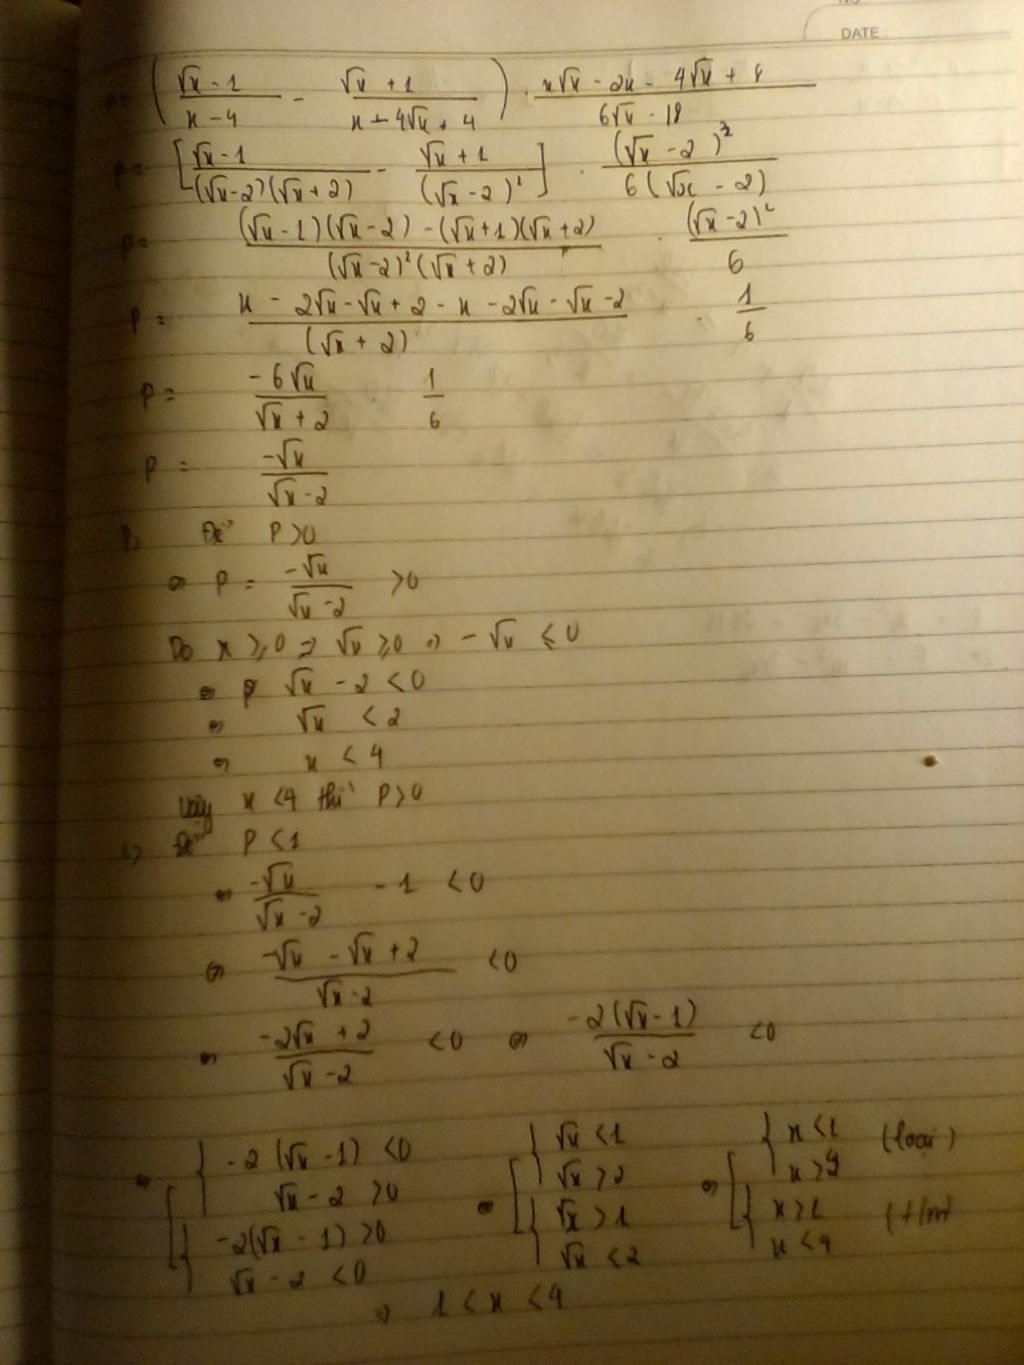 DATE :
P = ( (√x - 1)/(x - 4) - (√x + 1)/(x - 4√x + 4) ) . (x√x - 2x - 4√x + 8)/(6√x - 18)
P = [ (√x - 1)/((√x-2)(√x+2)) - (√x + 1)/(√x - 2)² ] . (√x - 2)³/(6(√x - 2))
P = ((√x - 1)(√x - 2) - (√x+1)(√x+2))/((√x-2)²(√x+2)) . (√x-2)²/6
P = (x - 2√x - √x + 2 - x - 2√x - √x - 2)/(√x + 2) . 1/6
P = (-6√x)/(√x + 2) . 1/6
P = (-√x)/(√x - 2)
b, Để P > 0
⇔ P = (-√x)/(√x - 2) > 0
Do x ≥ 0 ⇒ √x ≥ 0 ⇒ -√x ≤ 0
⇔ √x - 2 < 0
⇔ √x < 2
⇔ x < 4
Vậy x < 4 thì P > 0
c) Để P < 1
⇔ (-√x)/(√x - 2) - 1 < 0
⇔ (-√x - √x + 2)/(√x - 2) < 0
⇔ (-2√x + 2)/(√x - 2) < 0 ⇔ (-2(√x - 1))/(√x - 2) < 0
⇔ [ { -2(√x - 1) < 0 ⇔ [ { √x < 1 ⇔ [ { x < 1 (loại)
√x - 2 > 0 √x > 2 x > 4
{ -2(√x - 1) > 0 { √x > 1 { x > 1 (t/m)
√x - 2 < 0 √x < 2 x < 4
⇒ 1 < x < 4